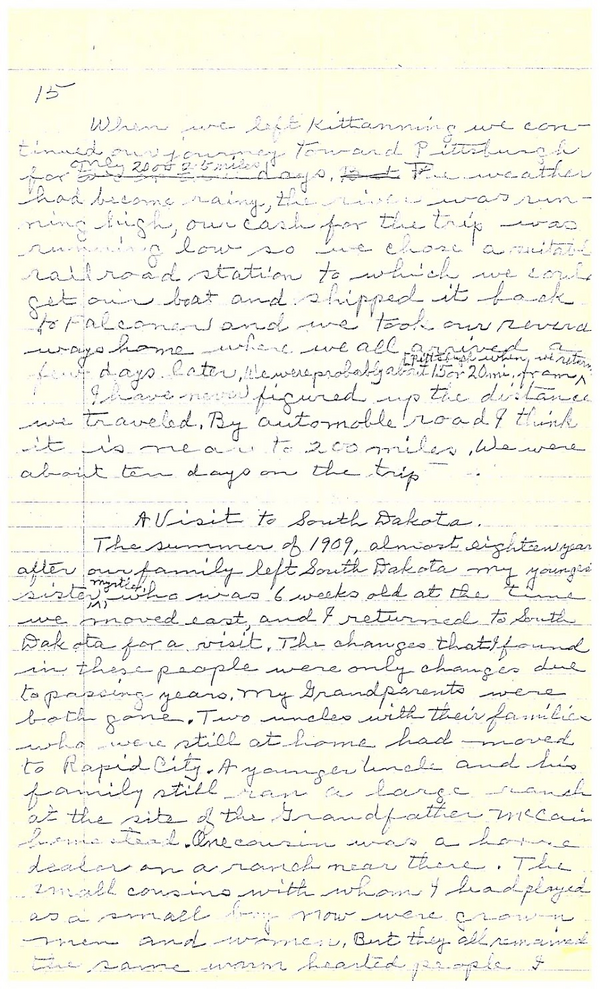 15
When we left Kittanning we con-
tinued our journey toward Pittsburgh
only 2 or 3
for days. The weather
had become rainy, the river was run-
ning high, our cash for the trip was
running low so we chose a suitabl
railroad station to which we could
get our boat and shipped it back
to Falconer and we took our several
ways home where we all arrived a
Pittsburgh when we return
few days later. We were probably about 15 or 20 mi. from
I have never figured up the distance
we traveled. By automoble road I think
it is near to 200 miles. We were
about ten days on the trip
A Visit to South Dakota.
The summer of 1909, almost eighteen year
after our family left South Dakota my younges
Myrtle
sister who was 6 weeks old at the time
we moved east, and I returned to South
Dakota for a visit. The changes that I found
in these people were only changes due
to passing years. My Grandparents were
both gone. Two uncles with their families
who were still at home had moved
to Rapid City. A younger Uncle and his
family still ran a large ranch
at the site of the Grandfather McCain
homestead. One cousin was a horse
dealer on a ranch near there. The
small cousins with whom I had played
as a small boy now were grown
men and women. But they all remained
the same warm hearted people I